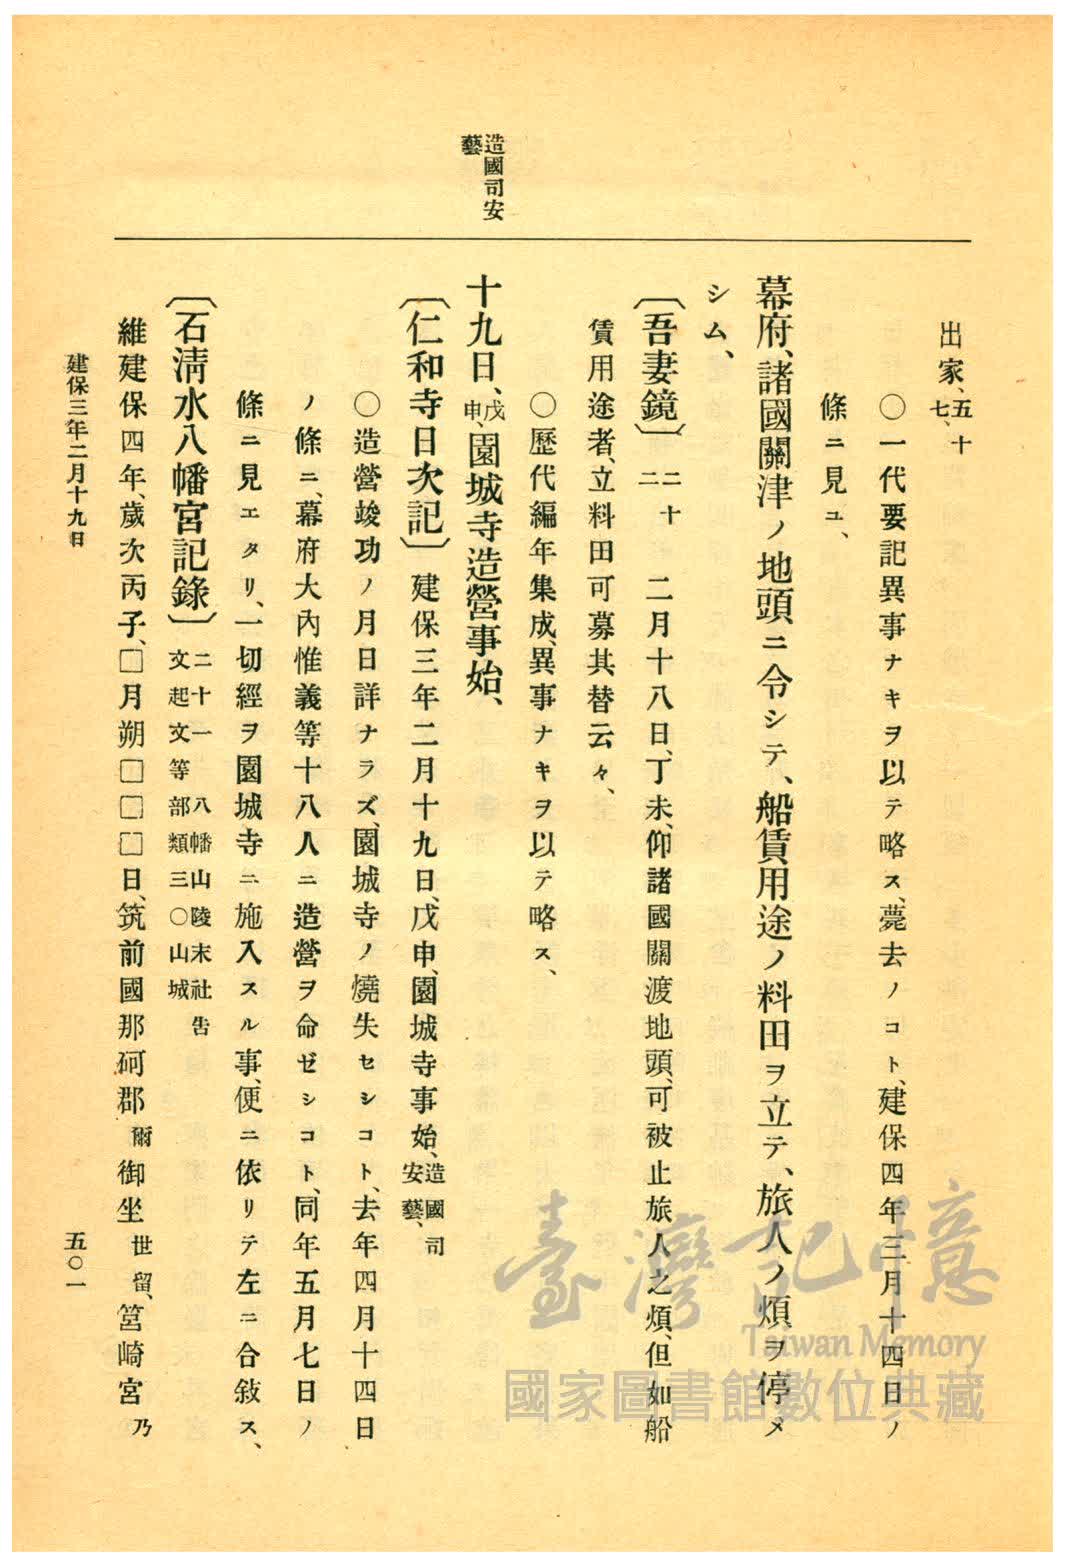 造國司安
藝
出家、五十七、
〇一代要記異事ナキヲ以テ略ス、薨去ノコト、建保四年三月十四日ノ
條ニ見ユ、
幕府、諸國關津ノ地頭ニ令シテ、船賃用途ノ料田ヲ立テ、旅人ノ煩ヲ停メ
シム、
〔吾妻鏡〕二十二 二月十八日、丁未、仰諸國關渡地頭、可被止旅人之煩、但如船
賃用途者、立料田可募其替云々、
〇歷代編年集成、異事ナキヲ以テ略ス、
十九日、戊申、園城寺造營事始、
〔仁和寺日次記〕建保三年二月十九日、戊申、園城寺事始、造國司安藝、
〇造營竣功ノ月日詳ナラズ、園城寺ノ燒失セシコト、去年四月十四日
ノ條ニ、幕府大內惟義等十八人ニ造營ヲ命ゼシコト、同年五月七日ノ
條ニ見エタリ、一切經ヲ園城寺ニ施入スル事、便ニ依リテ左ニ合敍ス、
〔石淸水八幡宮記錄〕二十一 八幡山陵末社告文起文等部類三〇山城
維建保四年、歲次丙子、□月朔□□□日、筑前國那珂郡爾御坐世留、筥崎宮乃
建保三年二月十九日
五〇一
臺灣記憶
Taiwan Memory
國家圖書館數位典藏